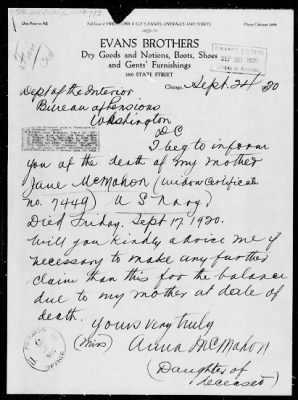 One Price to All
EVANS BROTHERS
Dry Goods and Notions, Boots, Shoes
and Gents' Furnishings
STATE STREET
Chicago, Sept. 24/20
Dept of the Interior
Bureau of Pensions
Washington
D C
I beg to inform
you of the death of my mother
Jane McMahon (widow Certificate
no. 7449) U S Navy.
Died Friday. Sept 17 1920.
Will you kindly advice me if
necessary to make any further
claim than this for the balance
due to my mother at date of
death.
Yours very truly
(Miss) Anna McMahon
(Daughter of
deceased)